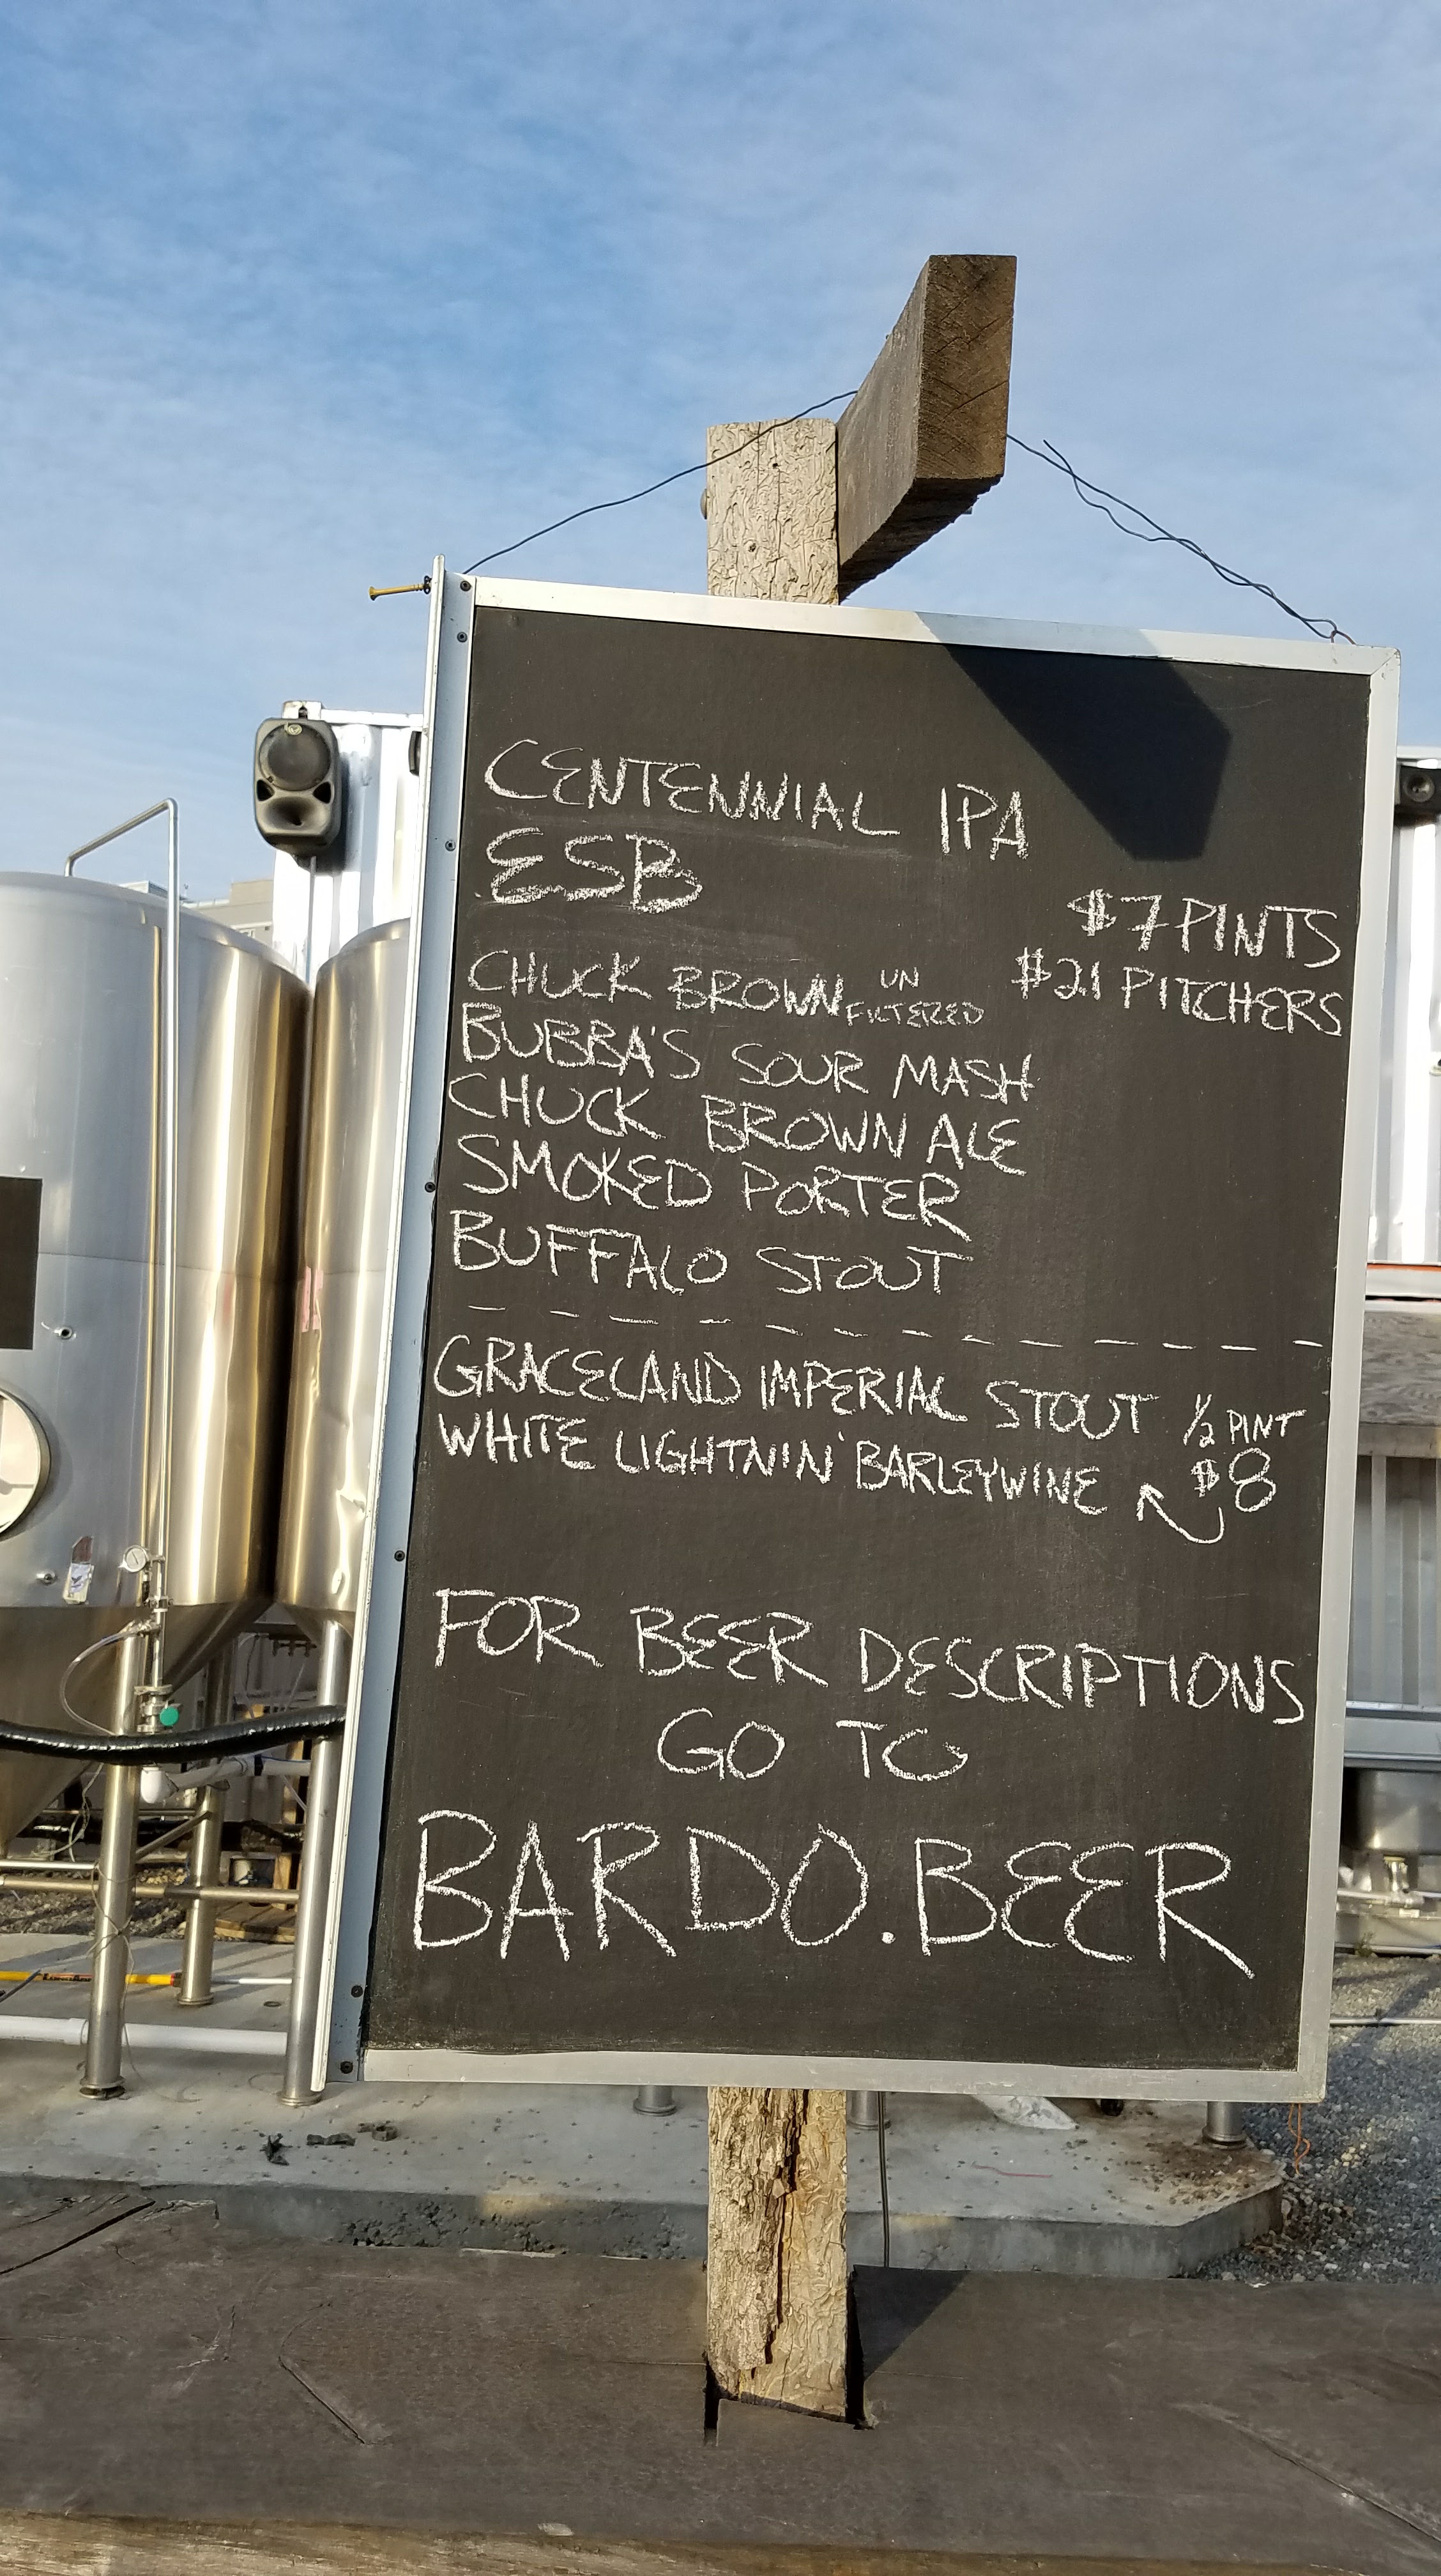 CENTENNIAL IPA
ESB
$7 PINTS
$21 PITCHERS
CHUCK BROWN UN FILTERED
BUBBA'S SOUR MASH
CHUCK BROWN ALE
SMOKED PORTER
BUFFALO STOUT
GRACELAND IMPERIAL STOUT 1/2 PINT
WHITE LIGHTNIN' BARLEYWINE $8
FOR BEER DESCRIPTIONS
GO TO
BARDO.BEER